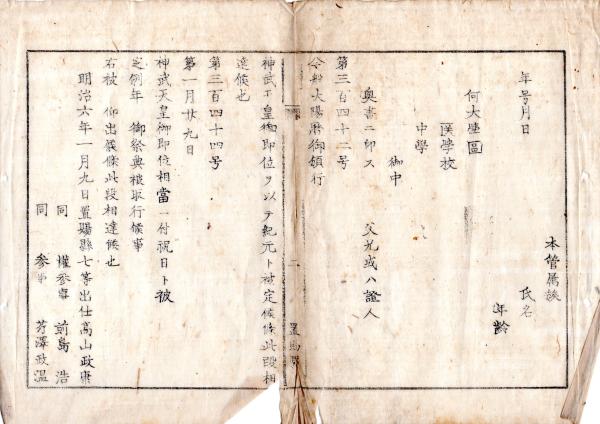 本管属族
氏名
年齢
年号月日
何大学區
漢學校
中學
御中
奥書ニ印ス 父兄或ハ證人
第三百四十二号
今般太陽暦御領行
神武天皇御即位ヲ以テ紀元ト被定候條此段相
達候也
第三百四十四号
第一月廿九日
神武天皇御即位相當ニ付祝日ト被
定例年 御祭典被取行候事
右被 仰出候條此段相達候也
明治六年一月九日置賜縣七等出仕高山政康
同 權参事 前島 浩
同 参事 芹澤政温